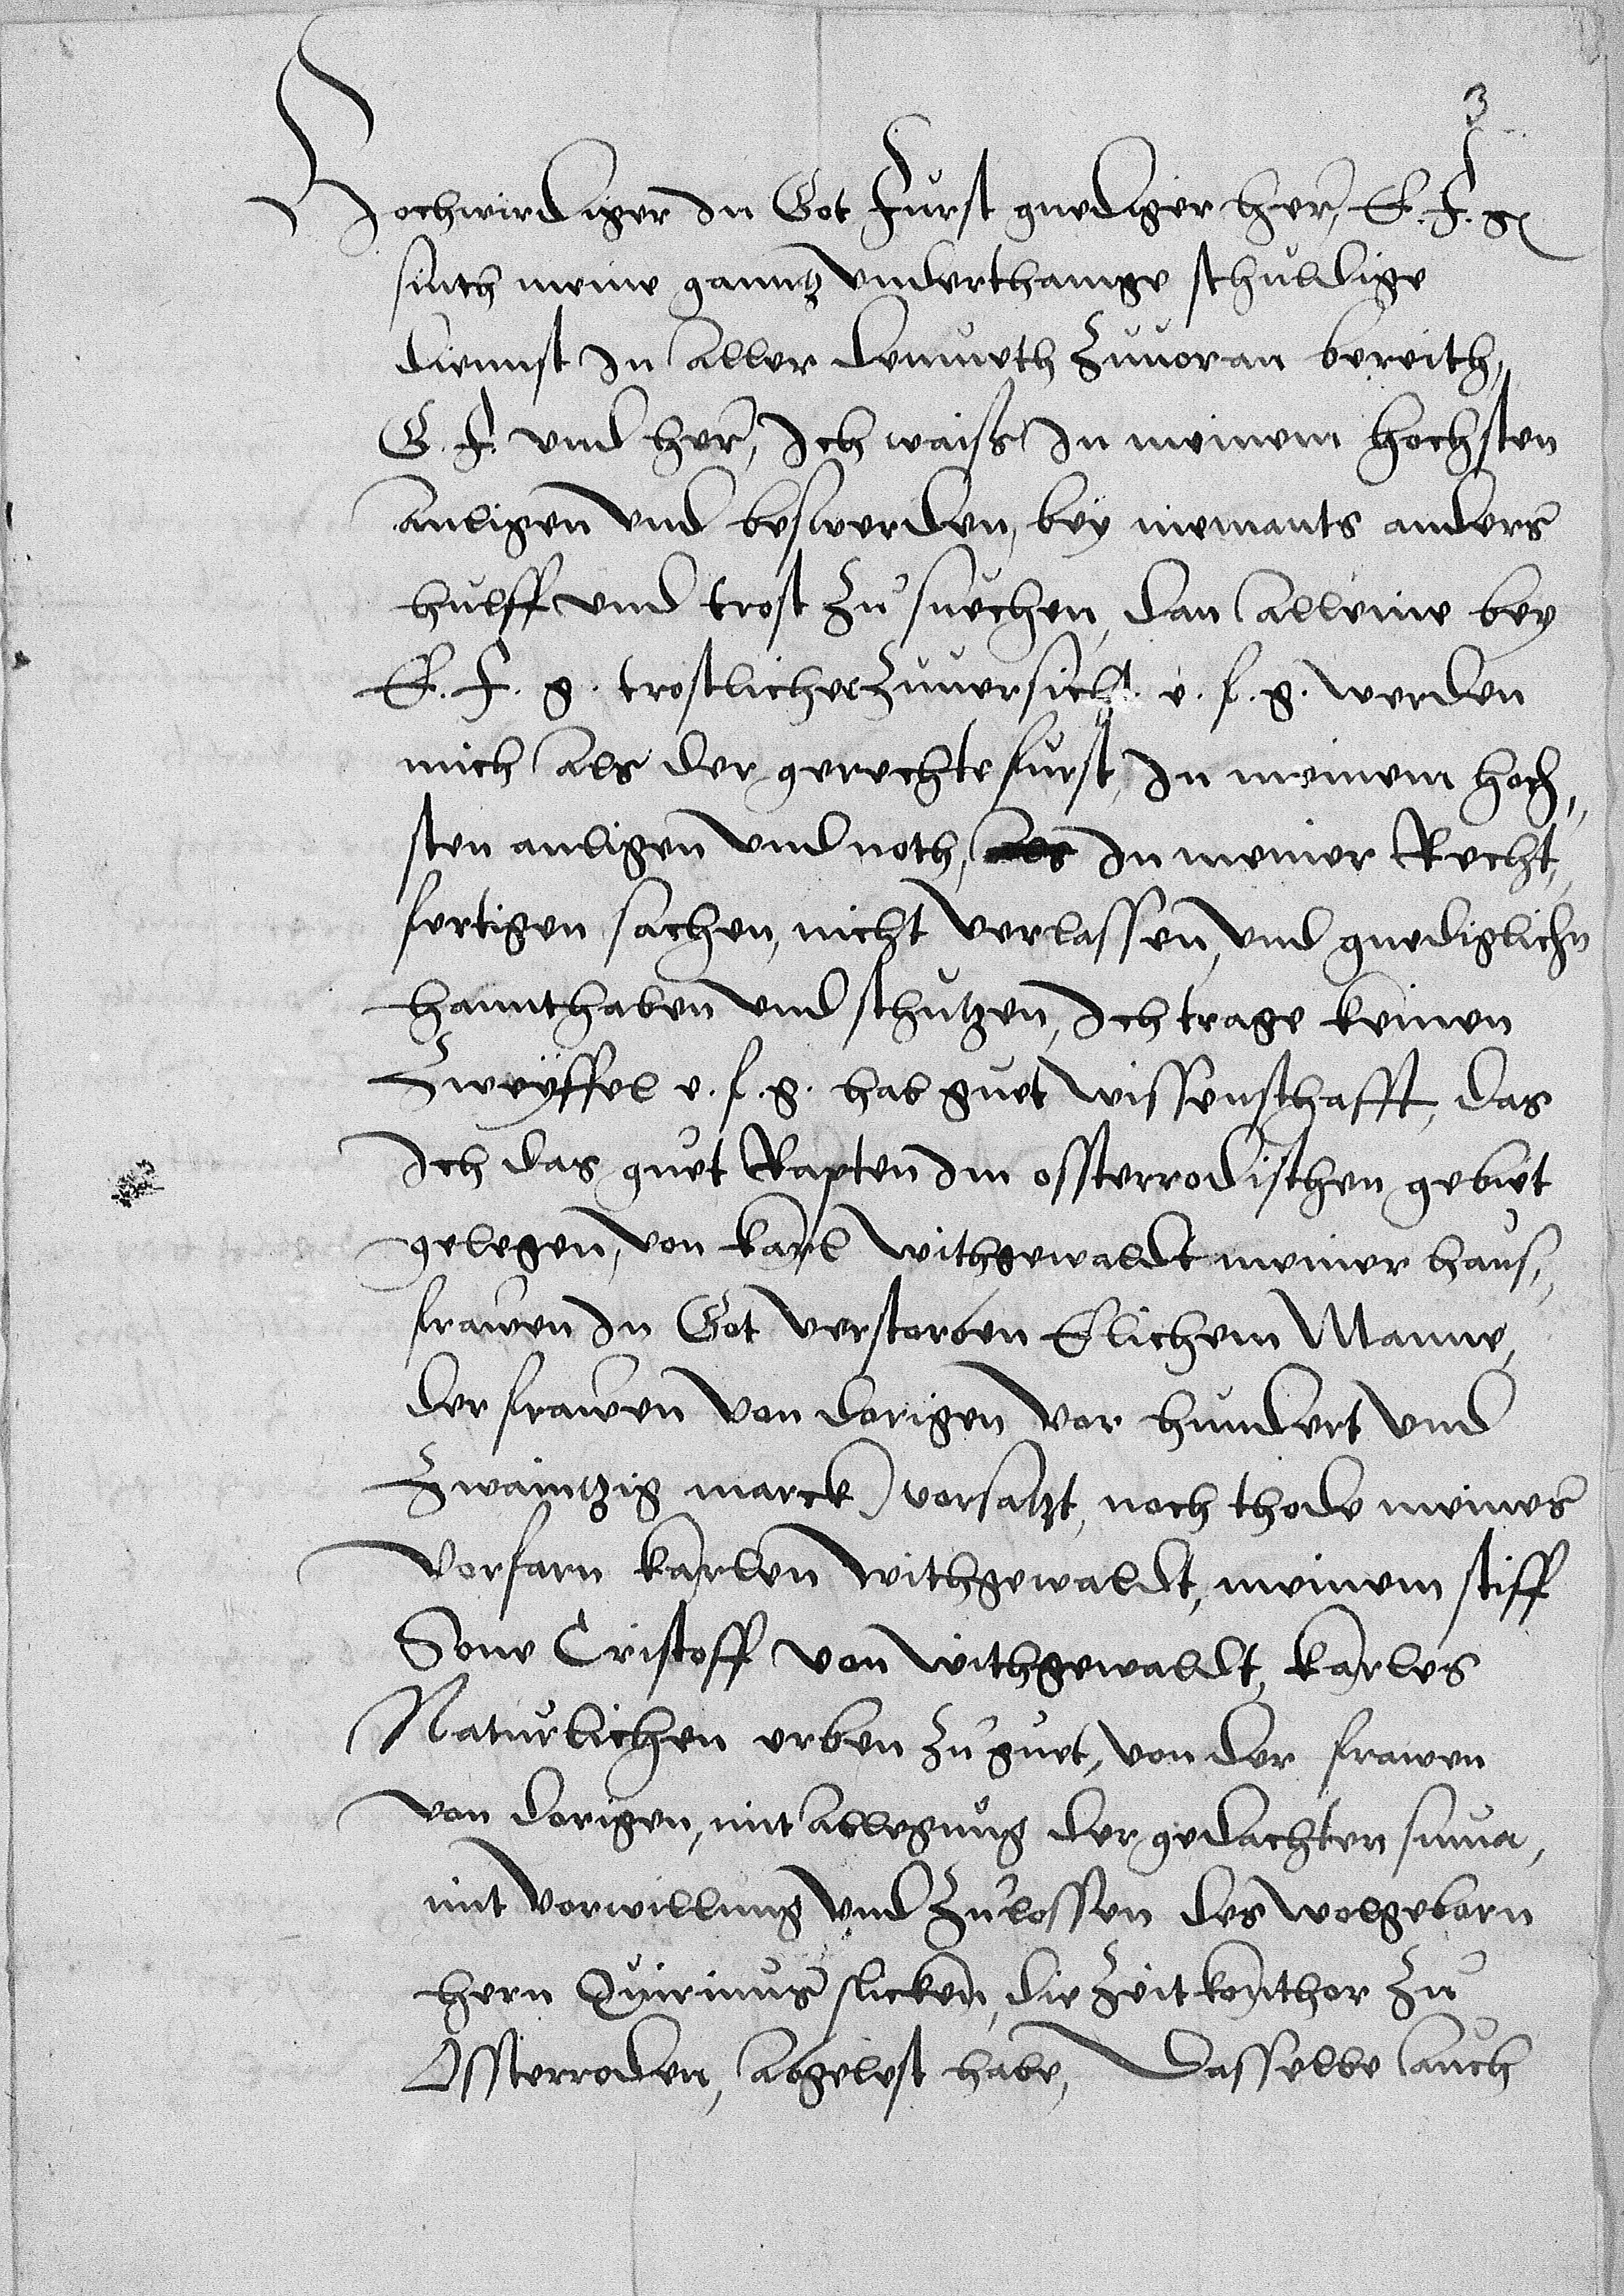 3
Hochwirdiger In Got Furst gnediger her, E. F. g
sinth meine ganntz underthanige schuldige
diennst In aller demueth Zuuoran bereith,
G. F. und her, Ich waiss In meinem hochsten
anligen und beswerden, bey niemants anders
hulff und trost Zu suechen, dan alleine bey
E. F. g. trostlicher Zuuersicht e. f. g. werden
mich als der gerechte furst, In meinem hoch,,
sten anligen und noth, In meiner Recht,,
fertigen sachen, nicht verlassen, und gnediglichn
hannthaben und schutzen, Ich trage keinen
Zweyffel e. f. g. hab guet wissenschafft, das
Ich das guet Rapten Im ossterrodischen gebiet
gelegen, von karl withgewaldt meiner haus,,
frawen In Got verstorben Elichem Manne,
der frawen von dorigen vor hundert und
Zwaintzig marck vorsatzt, noch thode meines
vorfarn karlen withgewaldt, meinem stiff
Sone Cristoff von withgewaldt, karles
Naturlichen erben Zu guet, von der frawen
von dorigen, mit ablegung der gedachten suma,
mit vorwillung und Zulossen des wolgebarn
hern Quirinus slicken, die Zeit konthor Zu
Ossterroden, abgelest habe, Dasselbe auch